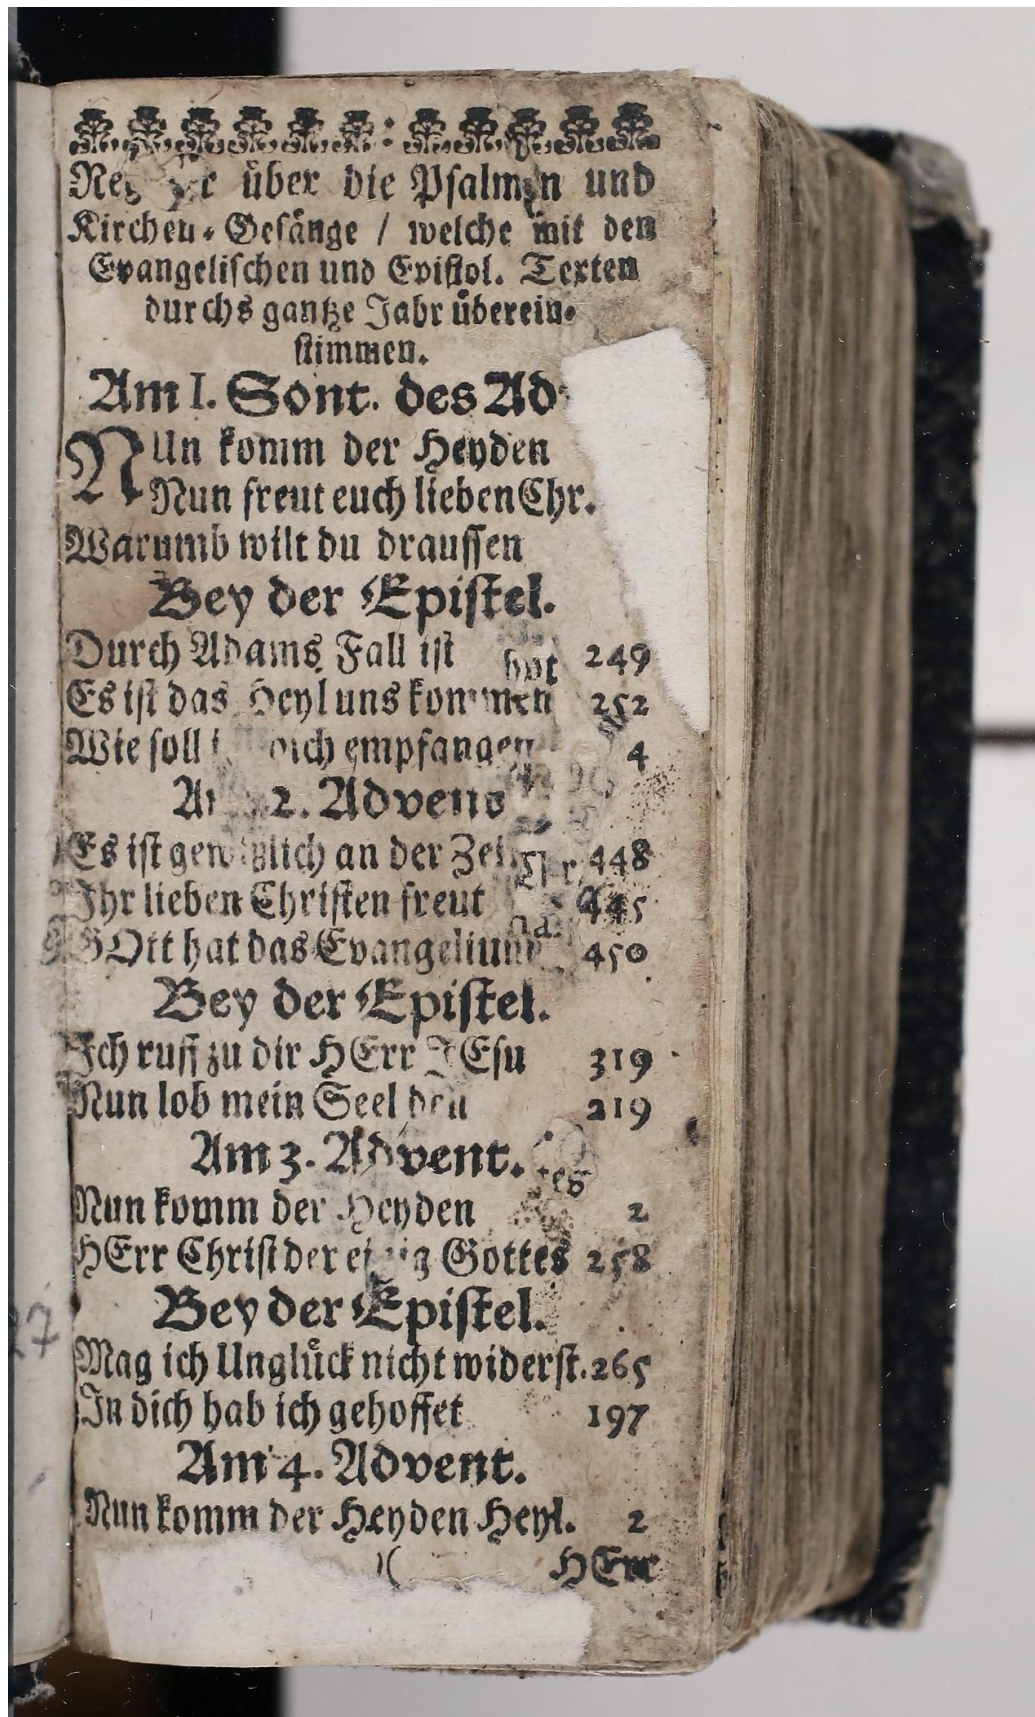 über die Psalmen und
Kirchen-Gesänge / welche mit den
Evangelischen und Epistol. Texten
durchs gantze Jahr überein-
stimmen.
Am I. Sont. des Ad
NUn komm der Heyden
Nun freut euch lieben Chr.
Warumb wilt du draussen
Bey der Epistel.
Durch Adams Fall ist 249
Es ist das Heyl uns kommen 252
Wie soll ich dich empfangen 4
Am 2. Advent
Es ist gewißlich an der Zeit 448
Ihr lieben Christen freut 445
GOtt hat das Evangelium 450
Bey der Epistel.
Ich ruff zu dir HErr JEsu 319
Nun lob mein Seel den 219
Am 3. Advent.
Nun komm der Heyden 2
HErr Christ der einig Gottes 258
Bey der Epistel.
Mag ich Unglück nicht widerst. 265
In dich hab ich gehoffet 197
Am 4. Advent.
Nun komm der Heyden Heyl. 2
)( HErr
27